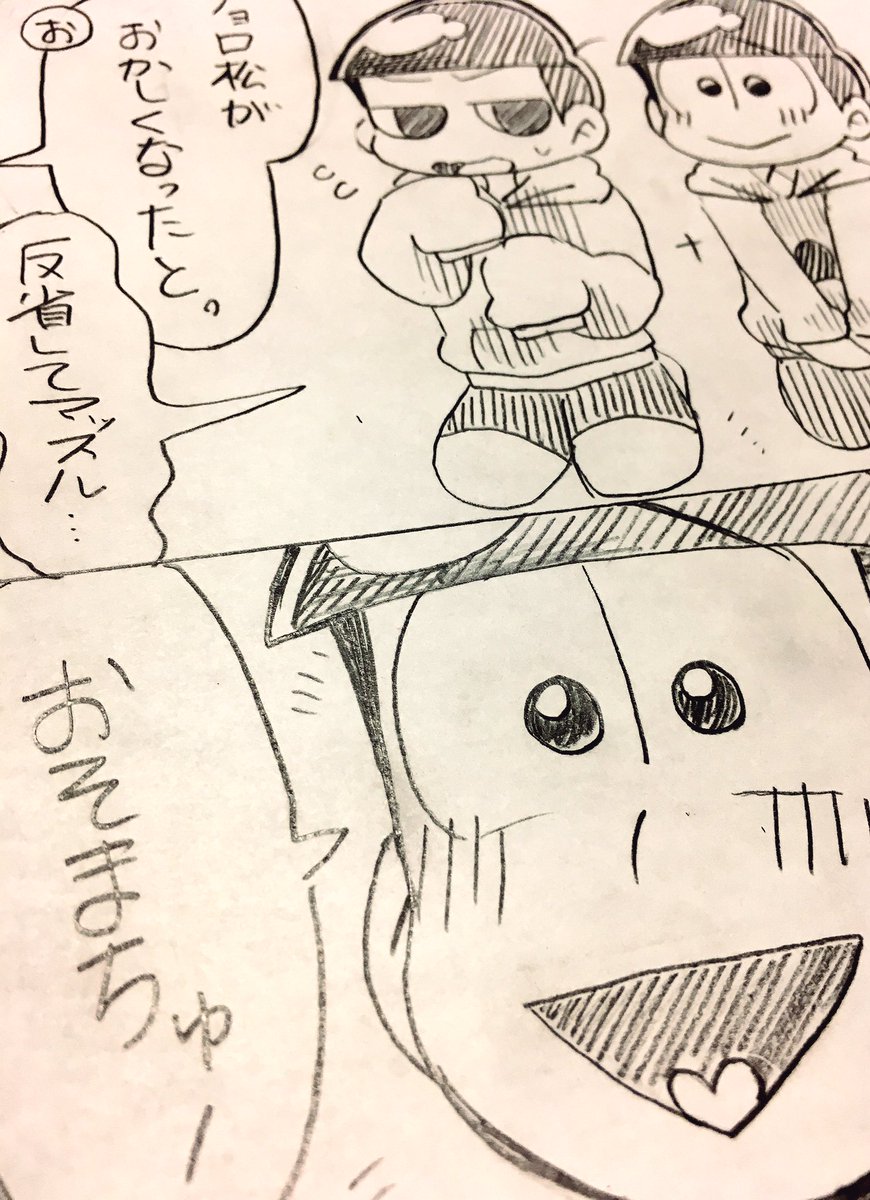 ョロ松が
おかしくなったと。
お
反省してマッスル…
おそまちゅー